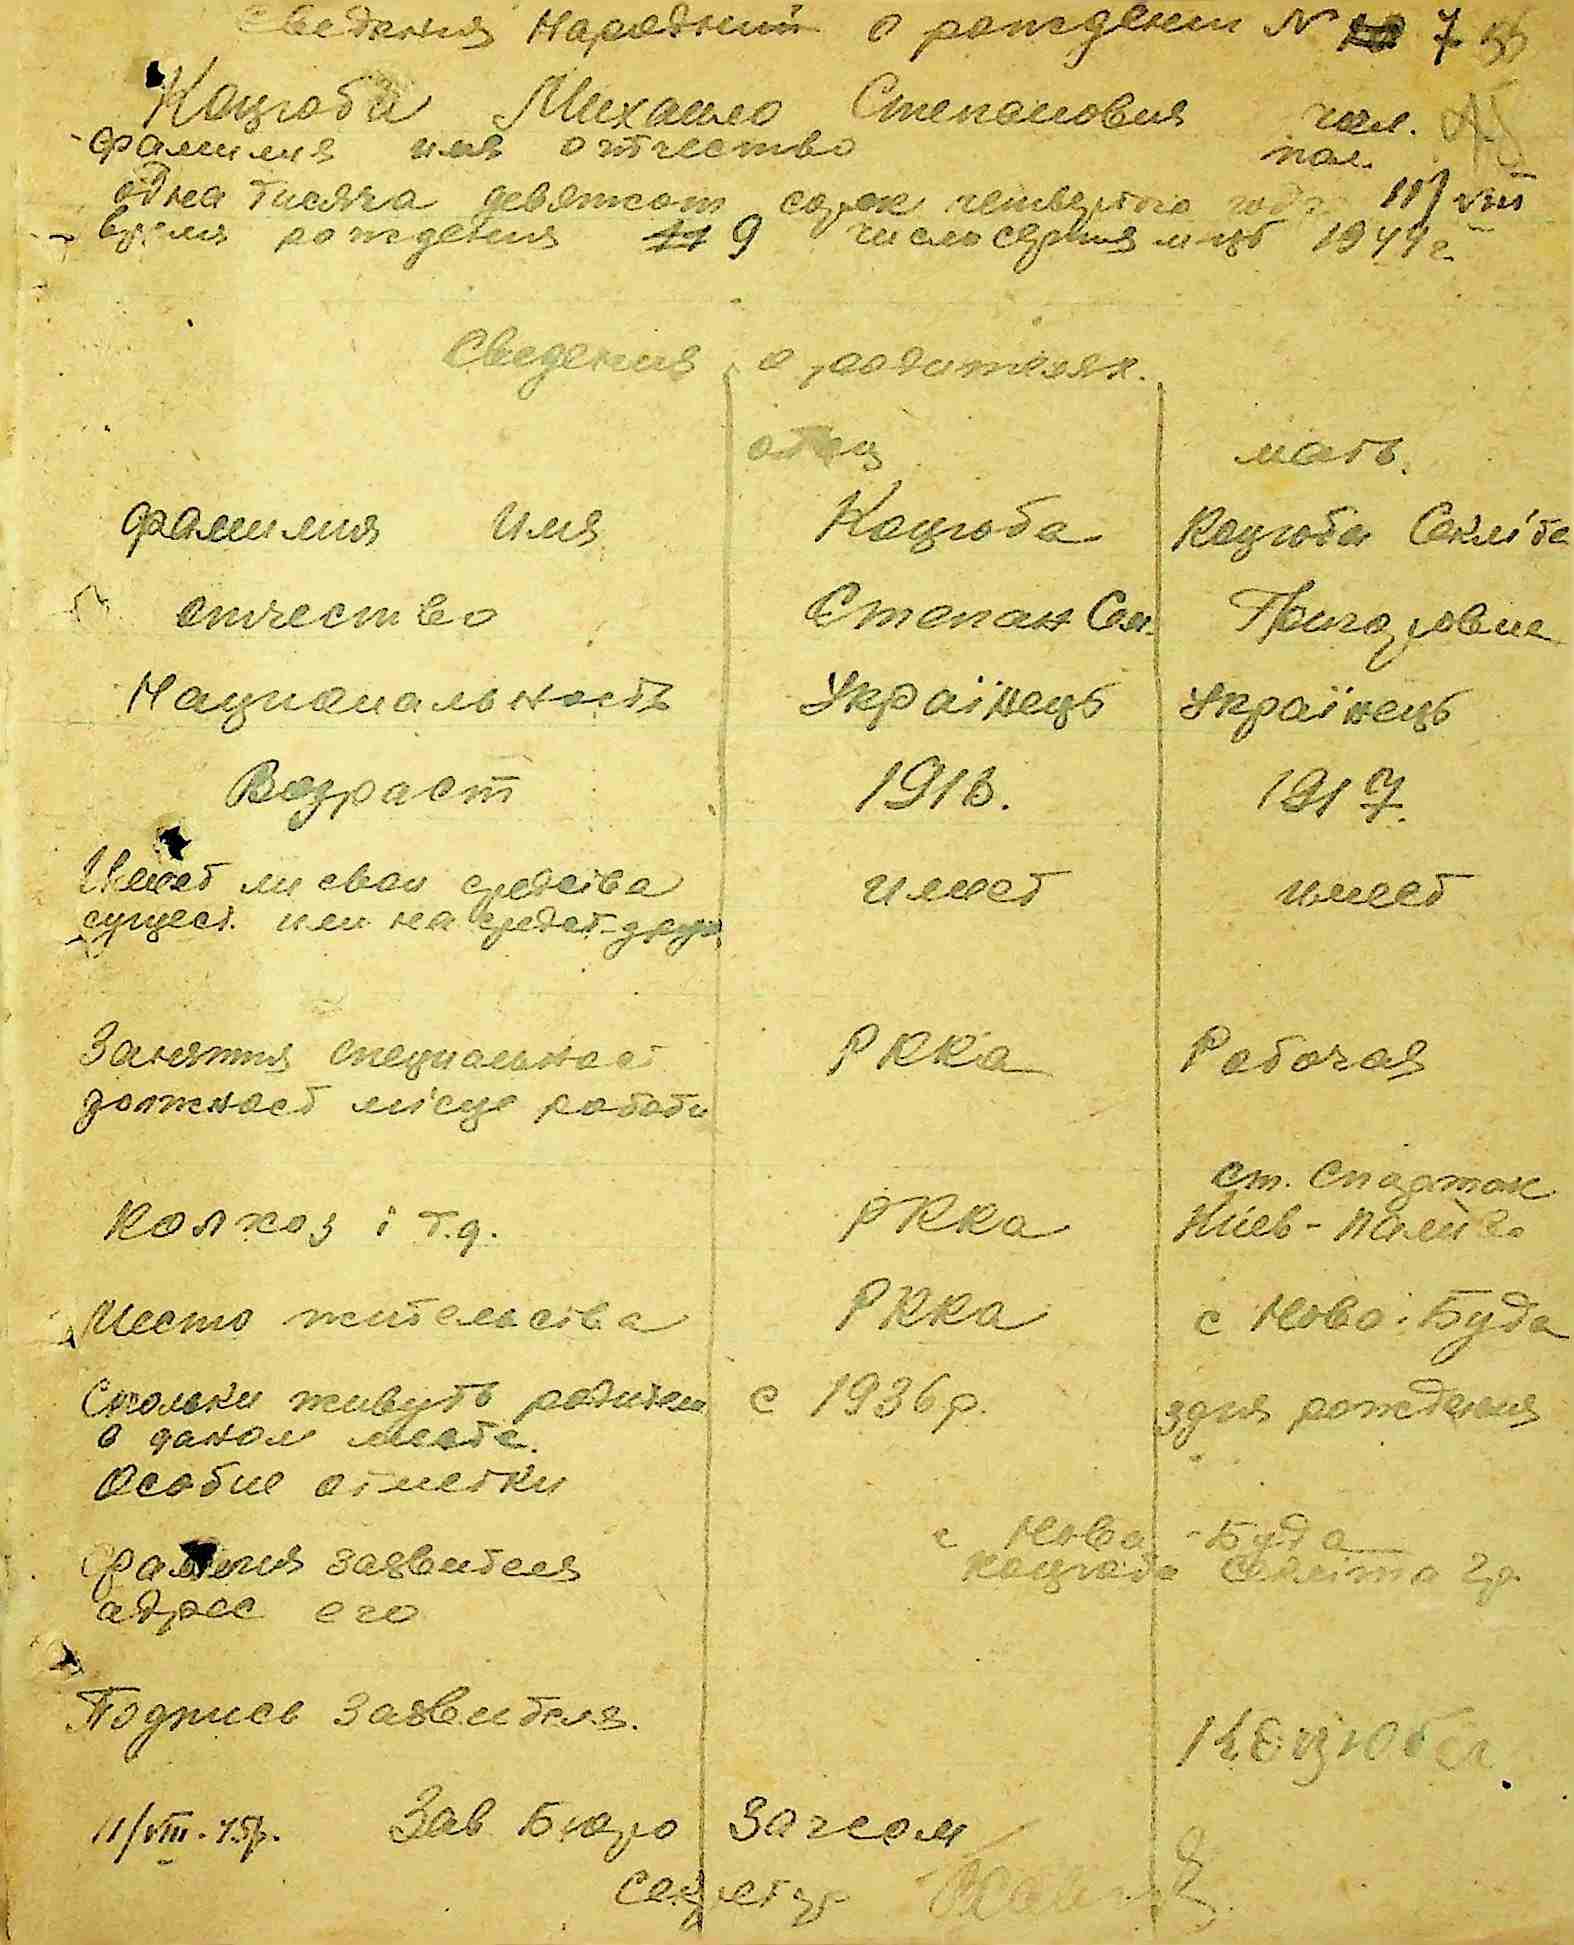 Сведения народний о рождении N 7
Коцюба Михаило Степановия чол.
фамилия имя отчество пол.
одна тисяча девятсот сорок четвертого года 11/VIII
время рождения 9 число серпня м-ць 1944 г.
Сведения о родителях.
отец мать.
фамилия Имя Коцюба Коцюба Секліта
отчество Степан Сем. Григоровне
Национальность Українець Українець
Возраст 1916. 1917.
Имеет ли свои средства имеет имеет
сущест. или на средст. друг.
Занятия специальност РККа Рабочая
должност місце работи
Колхоз і т.д. РККа ст. Спартак
Киев-
Место жительства РККа с Ново-Буда
Сколька живуть родители с 1936 р. здня рождения
в даном месте.
Особие отметки
с Ново-Буда
Фамилия заявителя Коцюба Секліта Гр.
адрес его
Подпись заявителя. Коцюба.
11/VIII.45р. Зав Бюро Загсом
секретар